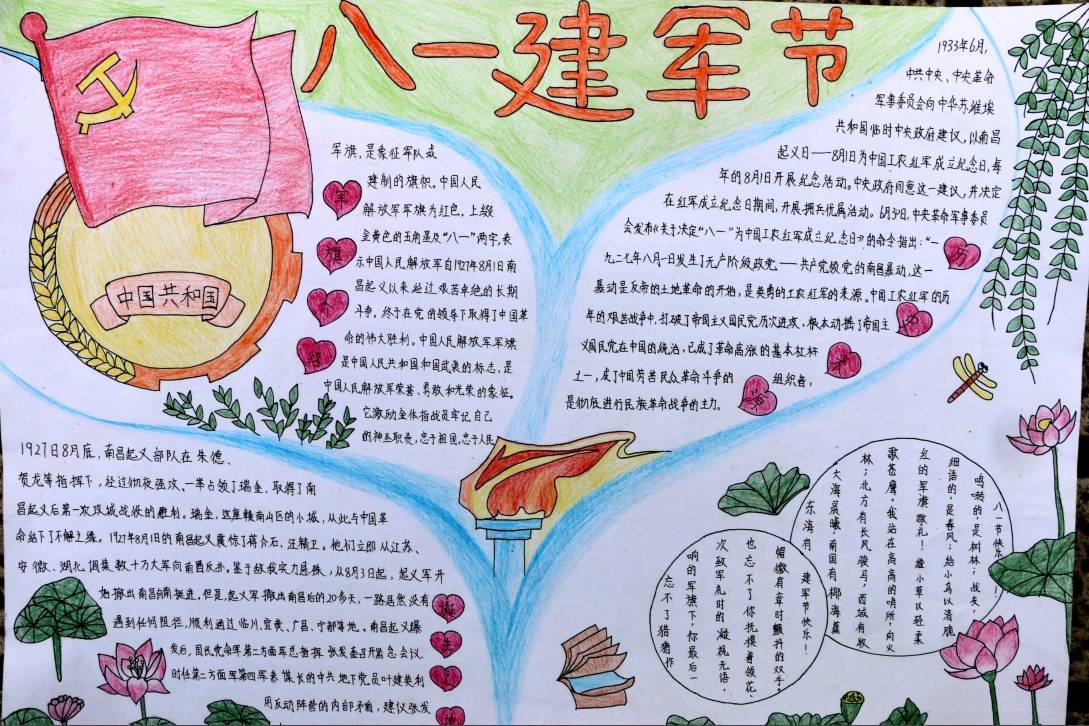 八一建军节
中国共和国
军旗介绍
军旗、是象征军队或
建制的旗帜。中国人民
解放军军旗为红色，上缀
金黄色的五角星及“八一”两字，表
示中国人民解放军自1927年8月1日南
昌起义以来经过艰苦卓绝的长期
斗争，终于在党的领导下取得了中国革
命的伟大胜利。中国人民解放军军旗
是中国人民共和国和国武装的标志，是
中国人民解放军荣誉、勇敢和光荣的象征。
它激励全体指战员牢记自己
的神圣职责，忠于祖国，忠于人民
1933年6月，
中共中央、中央革命
军事委员会向中华苏维埃
共和国临时中央政府建议，以南昌
起义日——8月1日为中国工农红军成立纪念日，每
年的8月1日开展纪念活动。中央政府同意这一建议，并决定
在红军成立纪念日期间，开展拥兵优属活动。6月30日，中央革命军事委员
会发布《关于决定“八一”为中国工农红军成立纪念日》的命令指出：“一
九二七年八月一日发生了无产阶级政党——共产党领党的南昌暴动，这一
暴动是反帝的土地革命的开始，是英勇的工农红军的来源。中国工农红军的历
年的艰苦战争中，打破了帝国主义国民党历次进攻，根本动摇了帝国主
义国民党在中国的统治，已成了革命高涨的基本杠杆
之一，成了中国劳苦民众革命斗争的组织者，
是彻底进行民族革命战争的主力。
历
来
1927日8月底，南昌起义部队在朱德、
贺龙等指挥下，经过彻夜强攻、一举占领了瑞金，取得了南
昌起义后第一次攻城战役的胜利。瑞金，这座赣南山区的小城，从此与中国革
命结下了不解之缘。1927年8月1日的南昌起义震惊了蒋介石、汪精卫。他们立即从江苏、
安徽、湖北，调集数十万大军向南昌反扑。基于敌我实力悬殊，从8月3日起，起义军开
始撤出南昌向南挺进。但是，起义军撤出南昌后的20多天，一路居然没有
遇到任何阻拦，顺利通过临川、宜黄、广昌、宁都等地。南昌起义爆
发后，国民党命军第二方面军总指挥张发奎召开紧急会议。
时任第二方面军第四军参谋长的中共地下党员叶建英利
用反动阵营的内部矛盾，建议张发
八一节快乐！
鸣啭的，是树林；战友，
细语的，是春风；给小鸟以清脆
红的军旗敬礼！给小草以轻柔
歌苍鹰。我站在高高的哨所，向火
林；北方有长风骏马，西域有牧
大海晨曦，南国有椰海蕉
东海有
建军节快乐！
帽徽肩章时颤抖的双手。
也忘不了你抚摸着领花、
次敬军礼时的凝视无语，
响的军旗下，你最后一
忘不了猎猎作